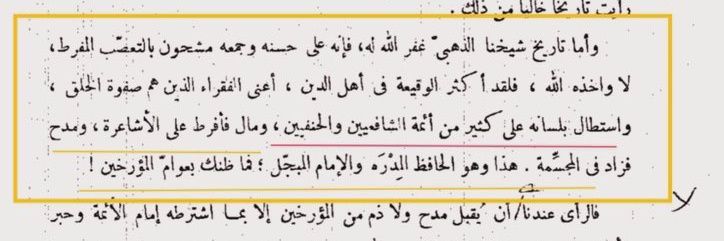 رأيت تاريخا خاليا من ذلك .
وأما تاريخ شيخنا الذهبيّ غفر الله له، فإنه على حسنه وجمعه مشحون بالتعصّب المفرط،
لا واخذه الله ، فلقد أكثر الوقيعة فى أهل الدين ، أعنى الفقراء الذين هم صفوة الخلق ،
واستطال بلسانه على كثير من أئمة الشافعيين والحنفيين ، ومال فأفرط على الأشاعرة ، ومدح
فزاد فى المجسِّمة . هذا وهو الحافظ المِدْرَه والإمام المبجّل ؛ فما ظنك بعوامّ المؤرخين !
فالرأى عندنا أن يُقبل مدح ولا ذم من المؤرخين إلا بما اشترطه إمام الأئمة وحبر